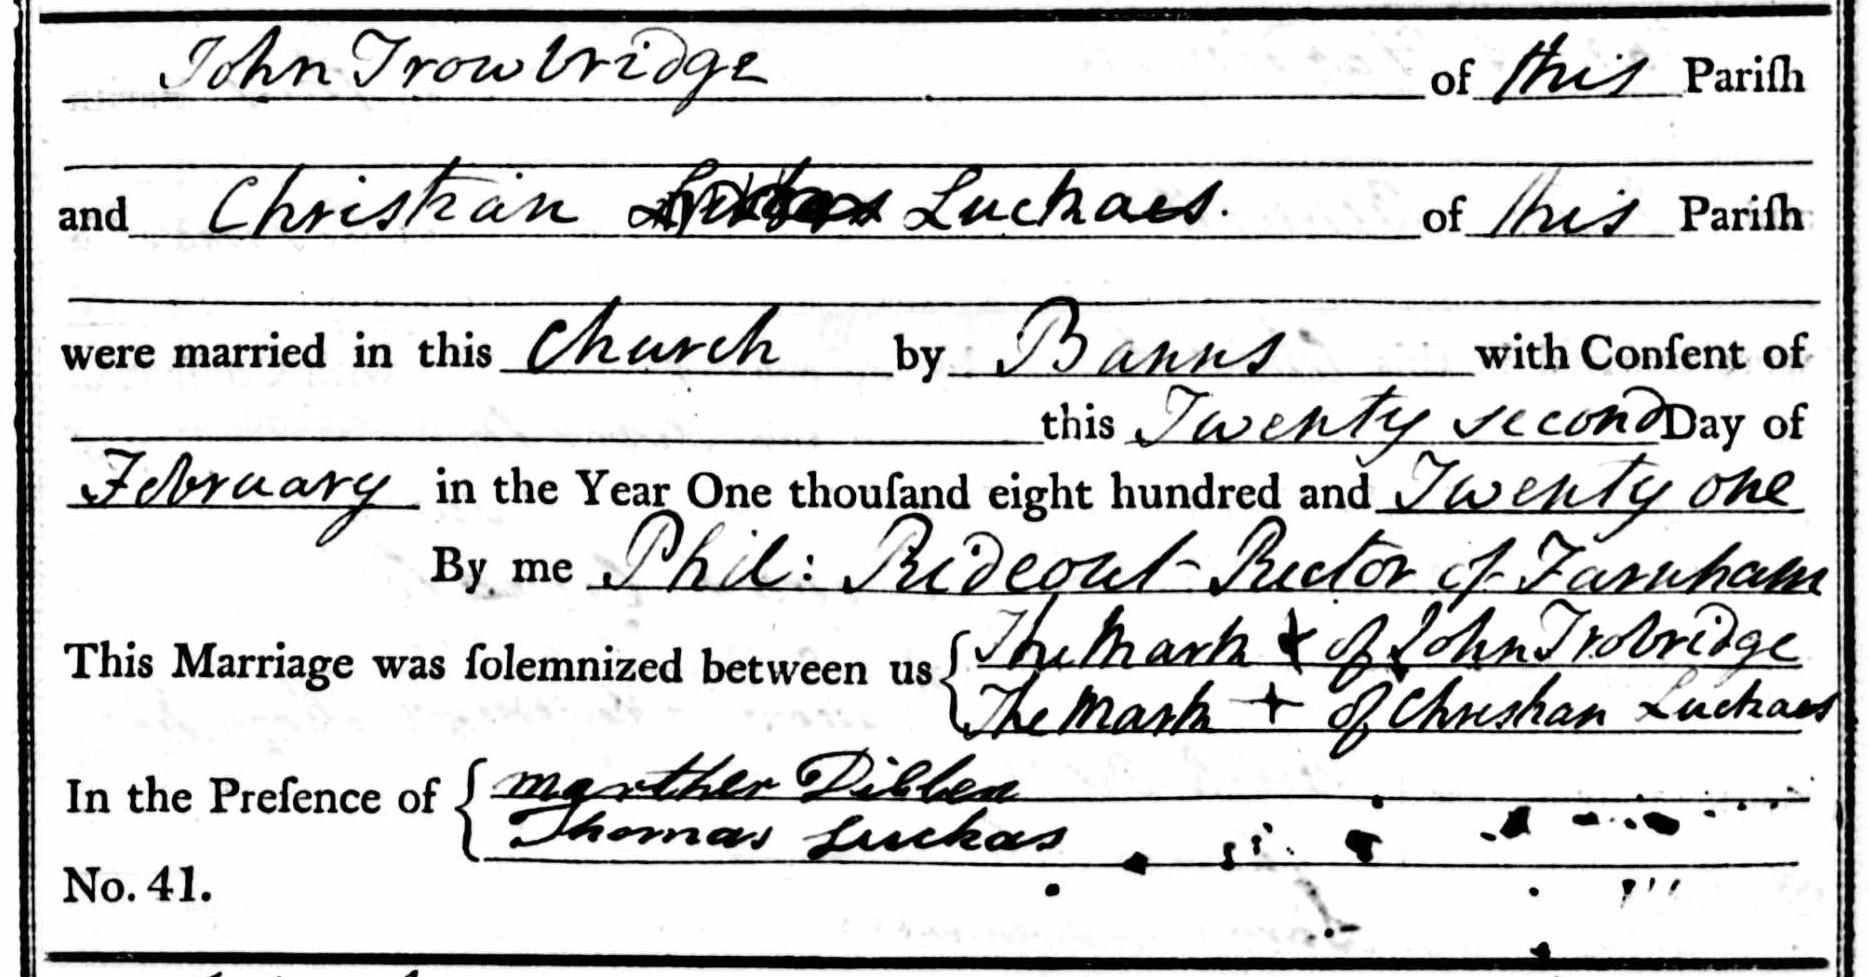 John Trowbridge of this Pariſh
and Christian Luckaes. of this Pariſh
were married in this Church by Banns with Conſent of
this Twenty second Day of
February in the Year One thouſand eight hundred and Twenty one
By me Phil: Rideout Rector of Farnham
This Marriage was ſolemnized between us { The Mark + of John Trobridge
The Mark + of Christian Luckaes
In the Preſence of { marther Dibben
Thomas Luckas
No. 41.